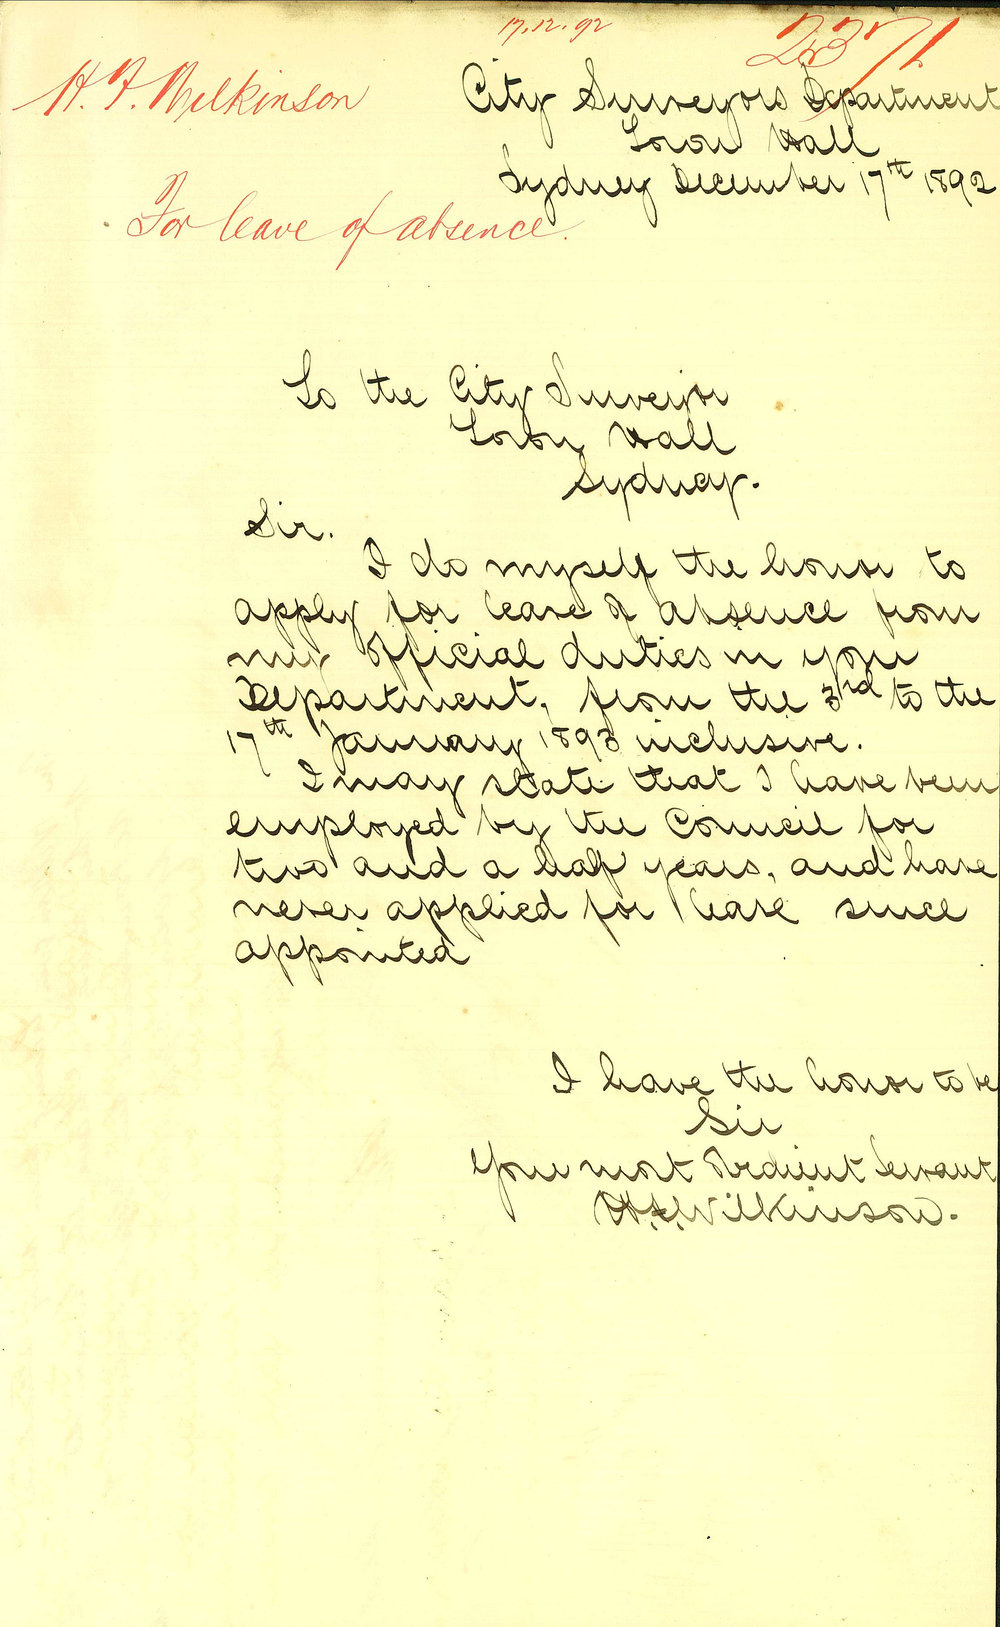 17.12.92
2371
H. F. Wilkinson
City Surveyors Department
Town Hall
Sydney December 17th 1892
For leave of absence.
To the City Surveyor
Town Hall
Sydney.
Sir.
I do myself the honor to
apply for leave of absence from
my official duties in your
Department, from the 3rd to the
17th January 1893 inclusive.
I may state that I have been
employed by the Council for
two and a half years, and have
never applied for leave since
appointed
I have the honor to be
Sir
Your most Obedient Servant
H.F. Wilkinson.